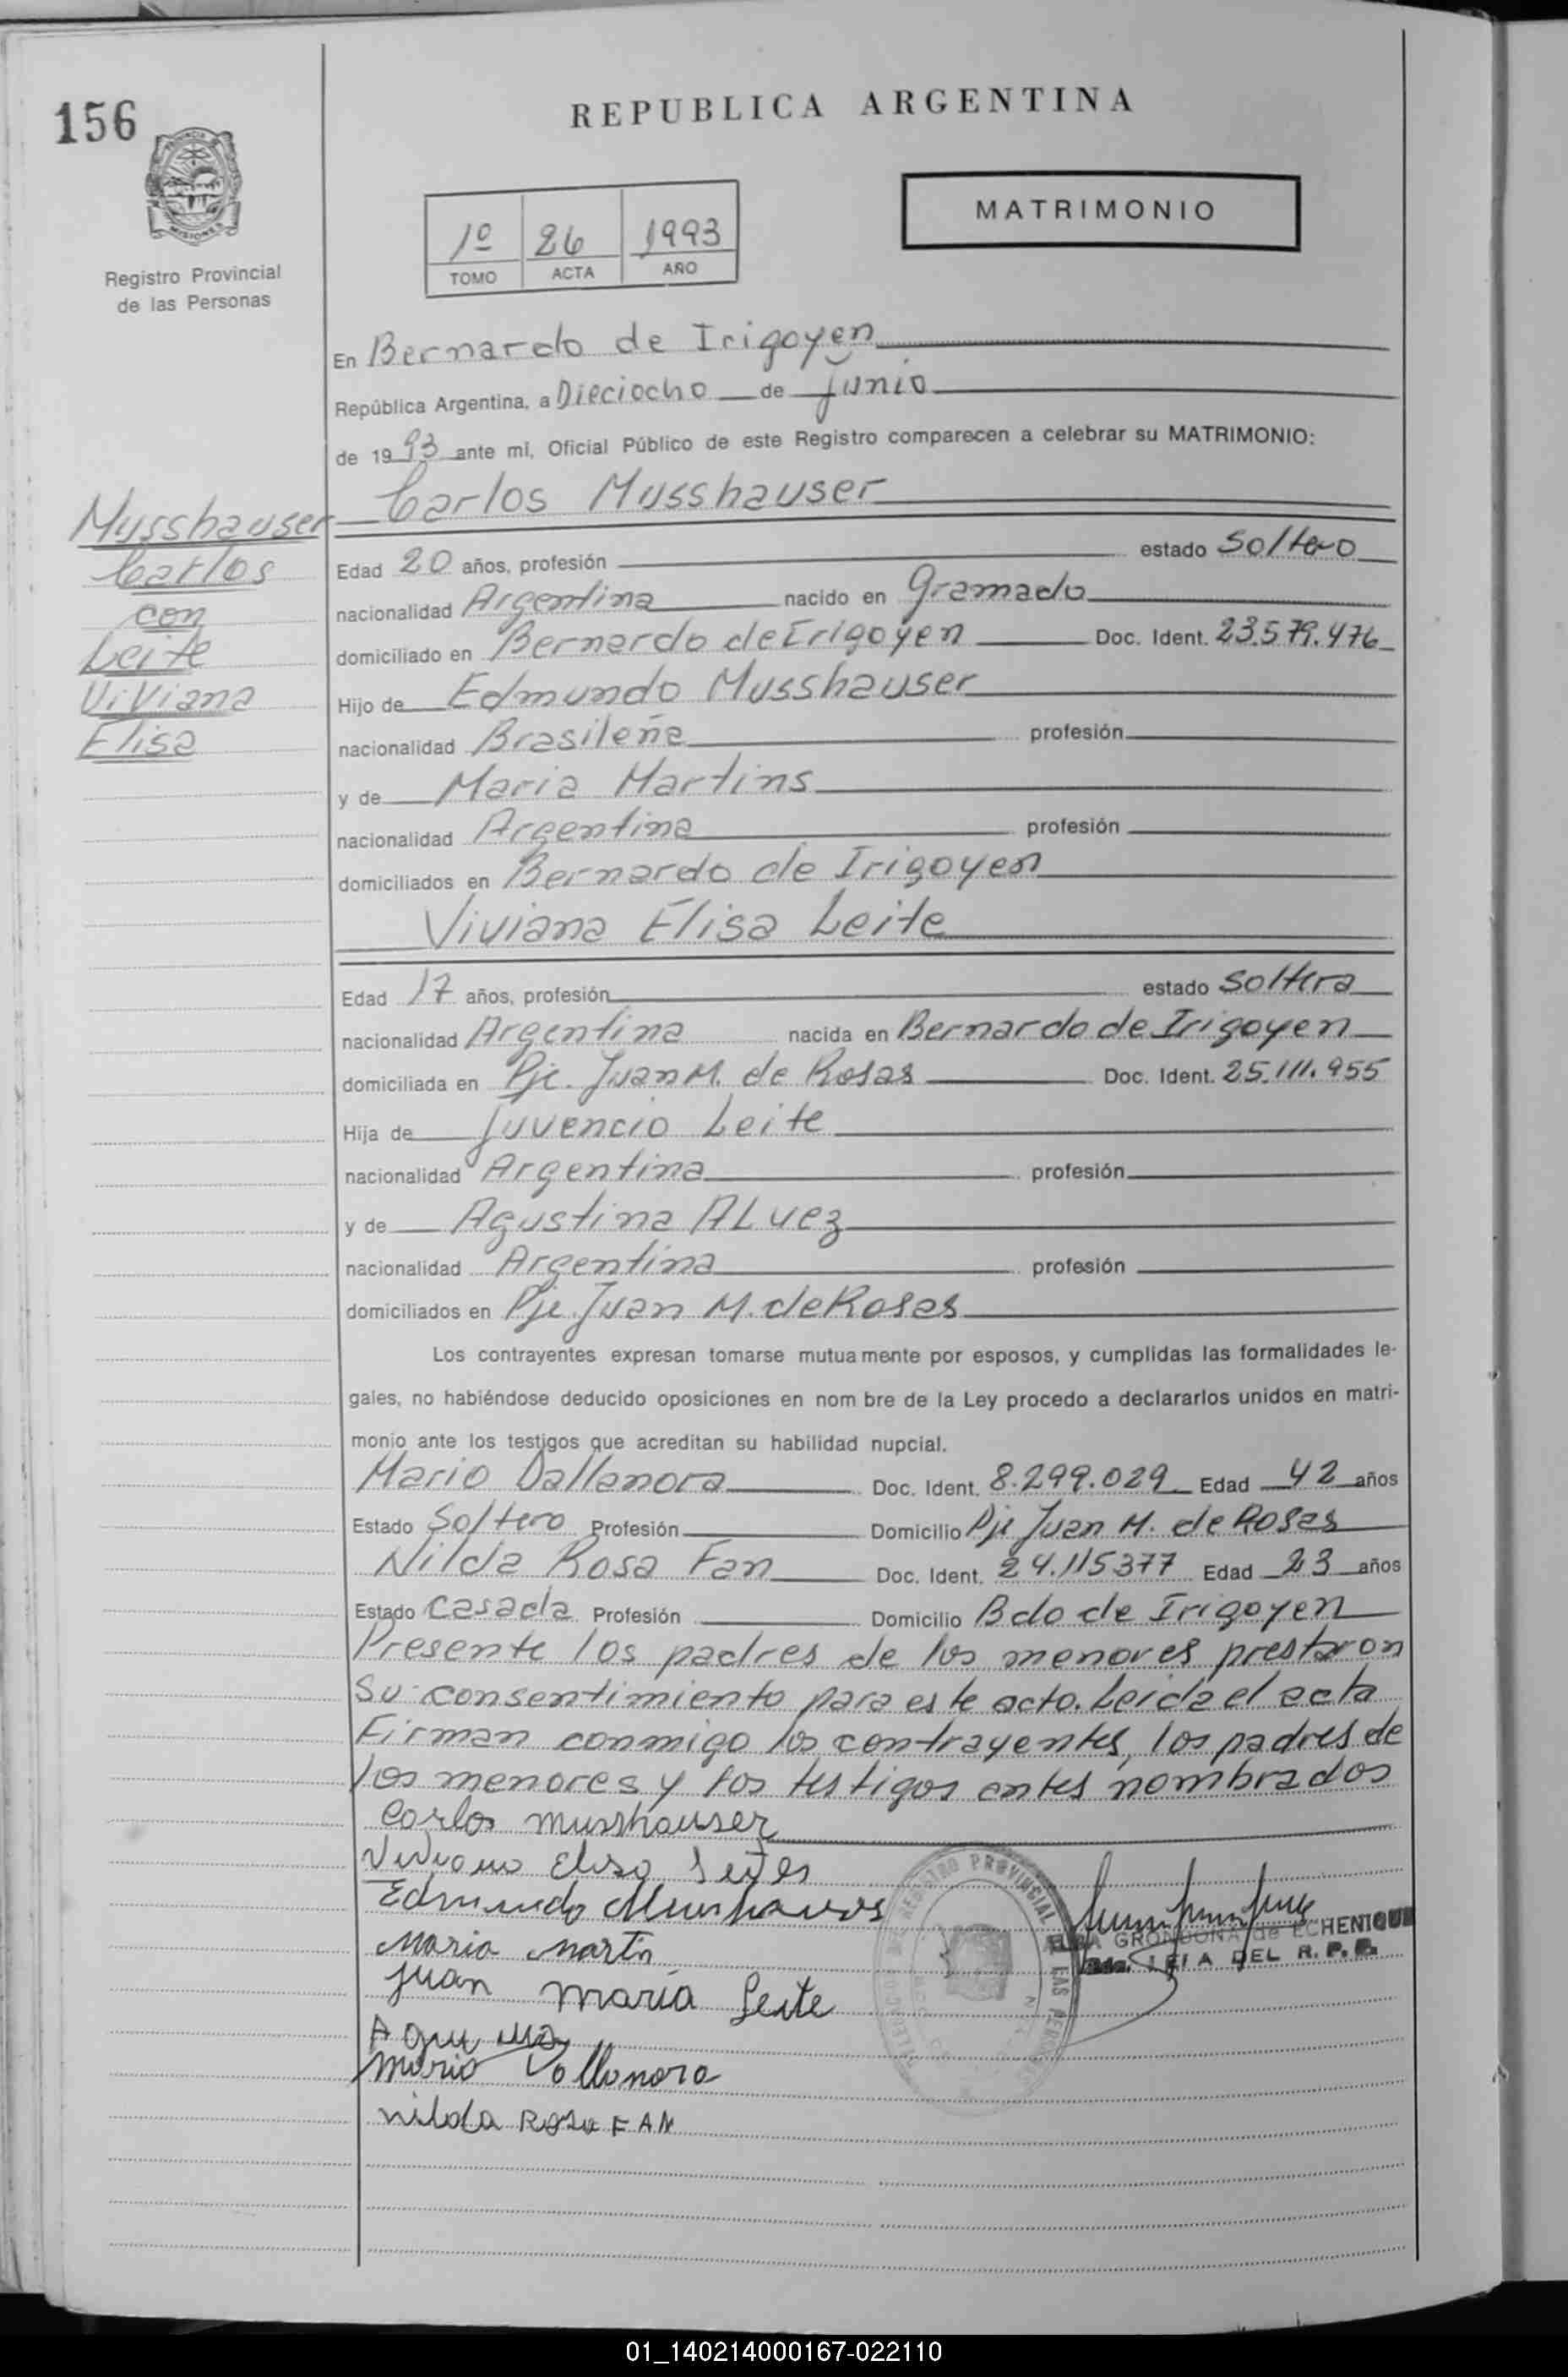 156
REPUBLICA ARGENTINA
PROVINCIA DE
MISIONES
Registro Provincial
de las Personas
MATRIMONIO
1º 26 1993
TOMO ACTA AÑO
En Bernardo de Irigoyen
República Argentina, a Dieciocho de junio
de 1993 ante mi, Oficial Público de este Registro comparecen a celebrar su MATRIMONIO:
Carlos Musshauser
Musshauser
Carlos
con
Leite
Viviana
Elisa
Edad 20 años, profesión estado Soltero
nacionalidad Argentina nacido en Gramado
domiciliado en Bernardo de Irigoyen Doc. Ident. 23.579.476
Hijo de Edmundo Musshauser
nacionalidad Brasileña profesión
y de Maria Martins
nacionalidad Argentina profesión
domiciliados en Bernardo de Irigoyen
Viviana Elisa Leite
Edad 17 años, profesión estado Soltera
nacionalidad Argentina nacida en Bernardo de Irigoyen
domiciliada en Pje. Juan M. de Rosas Doc. Ident. 25.111.955
Hija de Juvencio Leite
nacionalidad Argentina profesión
y de Agustina ALvez
nacionalidad Argentina profesión
domiciliados en Pje. Juan M. de Rosas
Los contrayentes expresan tomarse mutuamente por esposos, y cumplidas las formalidades le-
gales, no habiéndose deducido oposiciones en nom bre de la Ley procedo a declararlos unidos en matri-
monio ante los testigos que acreditan su habilidad nupcial.
Mario Dallanora Doc. Ident. 8.299.029 Edad 42 años
Estado Soltero Profesión Domicilio Pje Juan M. de Rosas
Nilda Rosa Fan Doc. Ident. 24.115377 Edad 23 años
Estado Casada Profesión Domicilio Bdo de Irigoyen
Presente los padres de los menores prestaron
Su consentimiento para este acto. Leida el acta
Firman conmigo los contrayentes, los padres de
los menores y los testigos antes nombrados
Carlos Musshauser
Viviana Elisa Leites
Edmundo
Maria Martin
Juan maria Leite
Mario Dallanora
nilda Rosa FAN
REGISTRO PROVINCIAL DE LAS PERSONAS
GRONDONA de ECHENIQUE
DEL R. P. P.
01_140214000167-022110